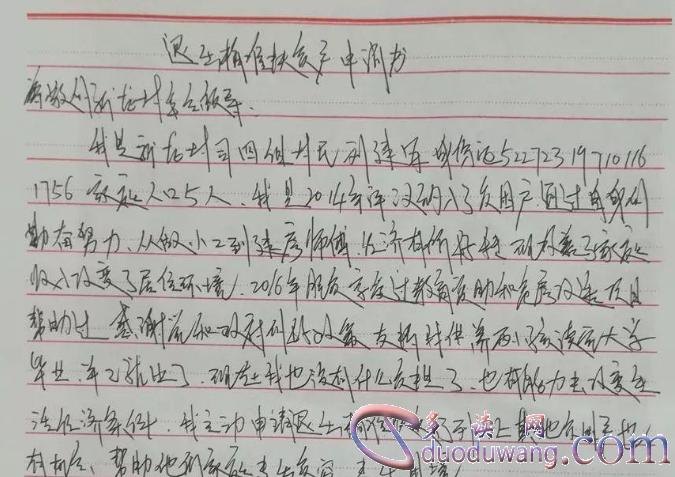 退出精准扶贫户申请书
尊敬的新龙村委会领导:
我是新龙村司四组村民刘建军 身份证52272319710116
1756 家庭人口5人、我是2014年评议纳入了贫困户.通过自身的
勤奋努力、从做小工到建房师傅.经济有所好转 现改善了家庭
收入改变了居住环境、2016年脱贫享受过教育资助和危房改造项目
帮助过 感谢党和政府的好政策 支持我供养两小孩读完大学
毕业.并已就业了.现在我也没有什么负担了 也有能力去改变生
活经济条件、我主动申请退出精准扶贫
有机会、帮助他们家庭
多读网
duoduwang.com